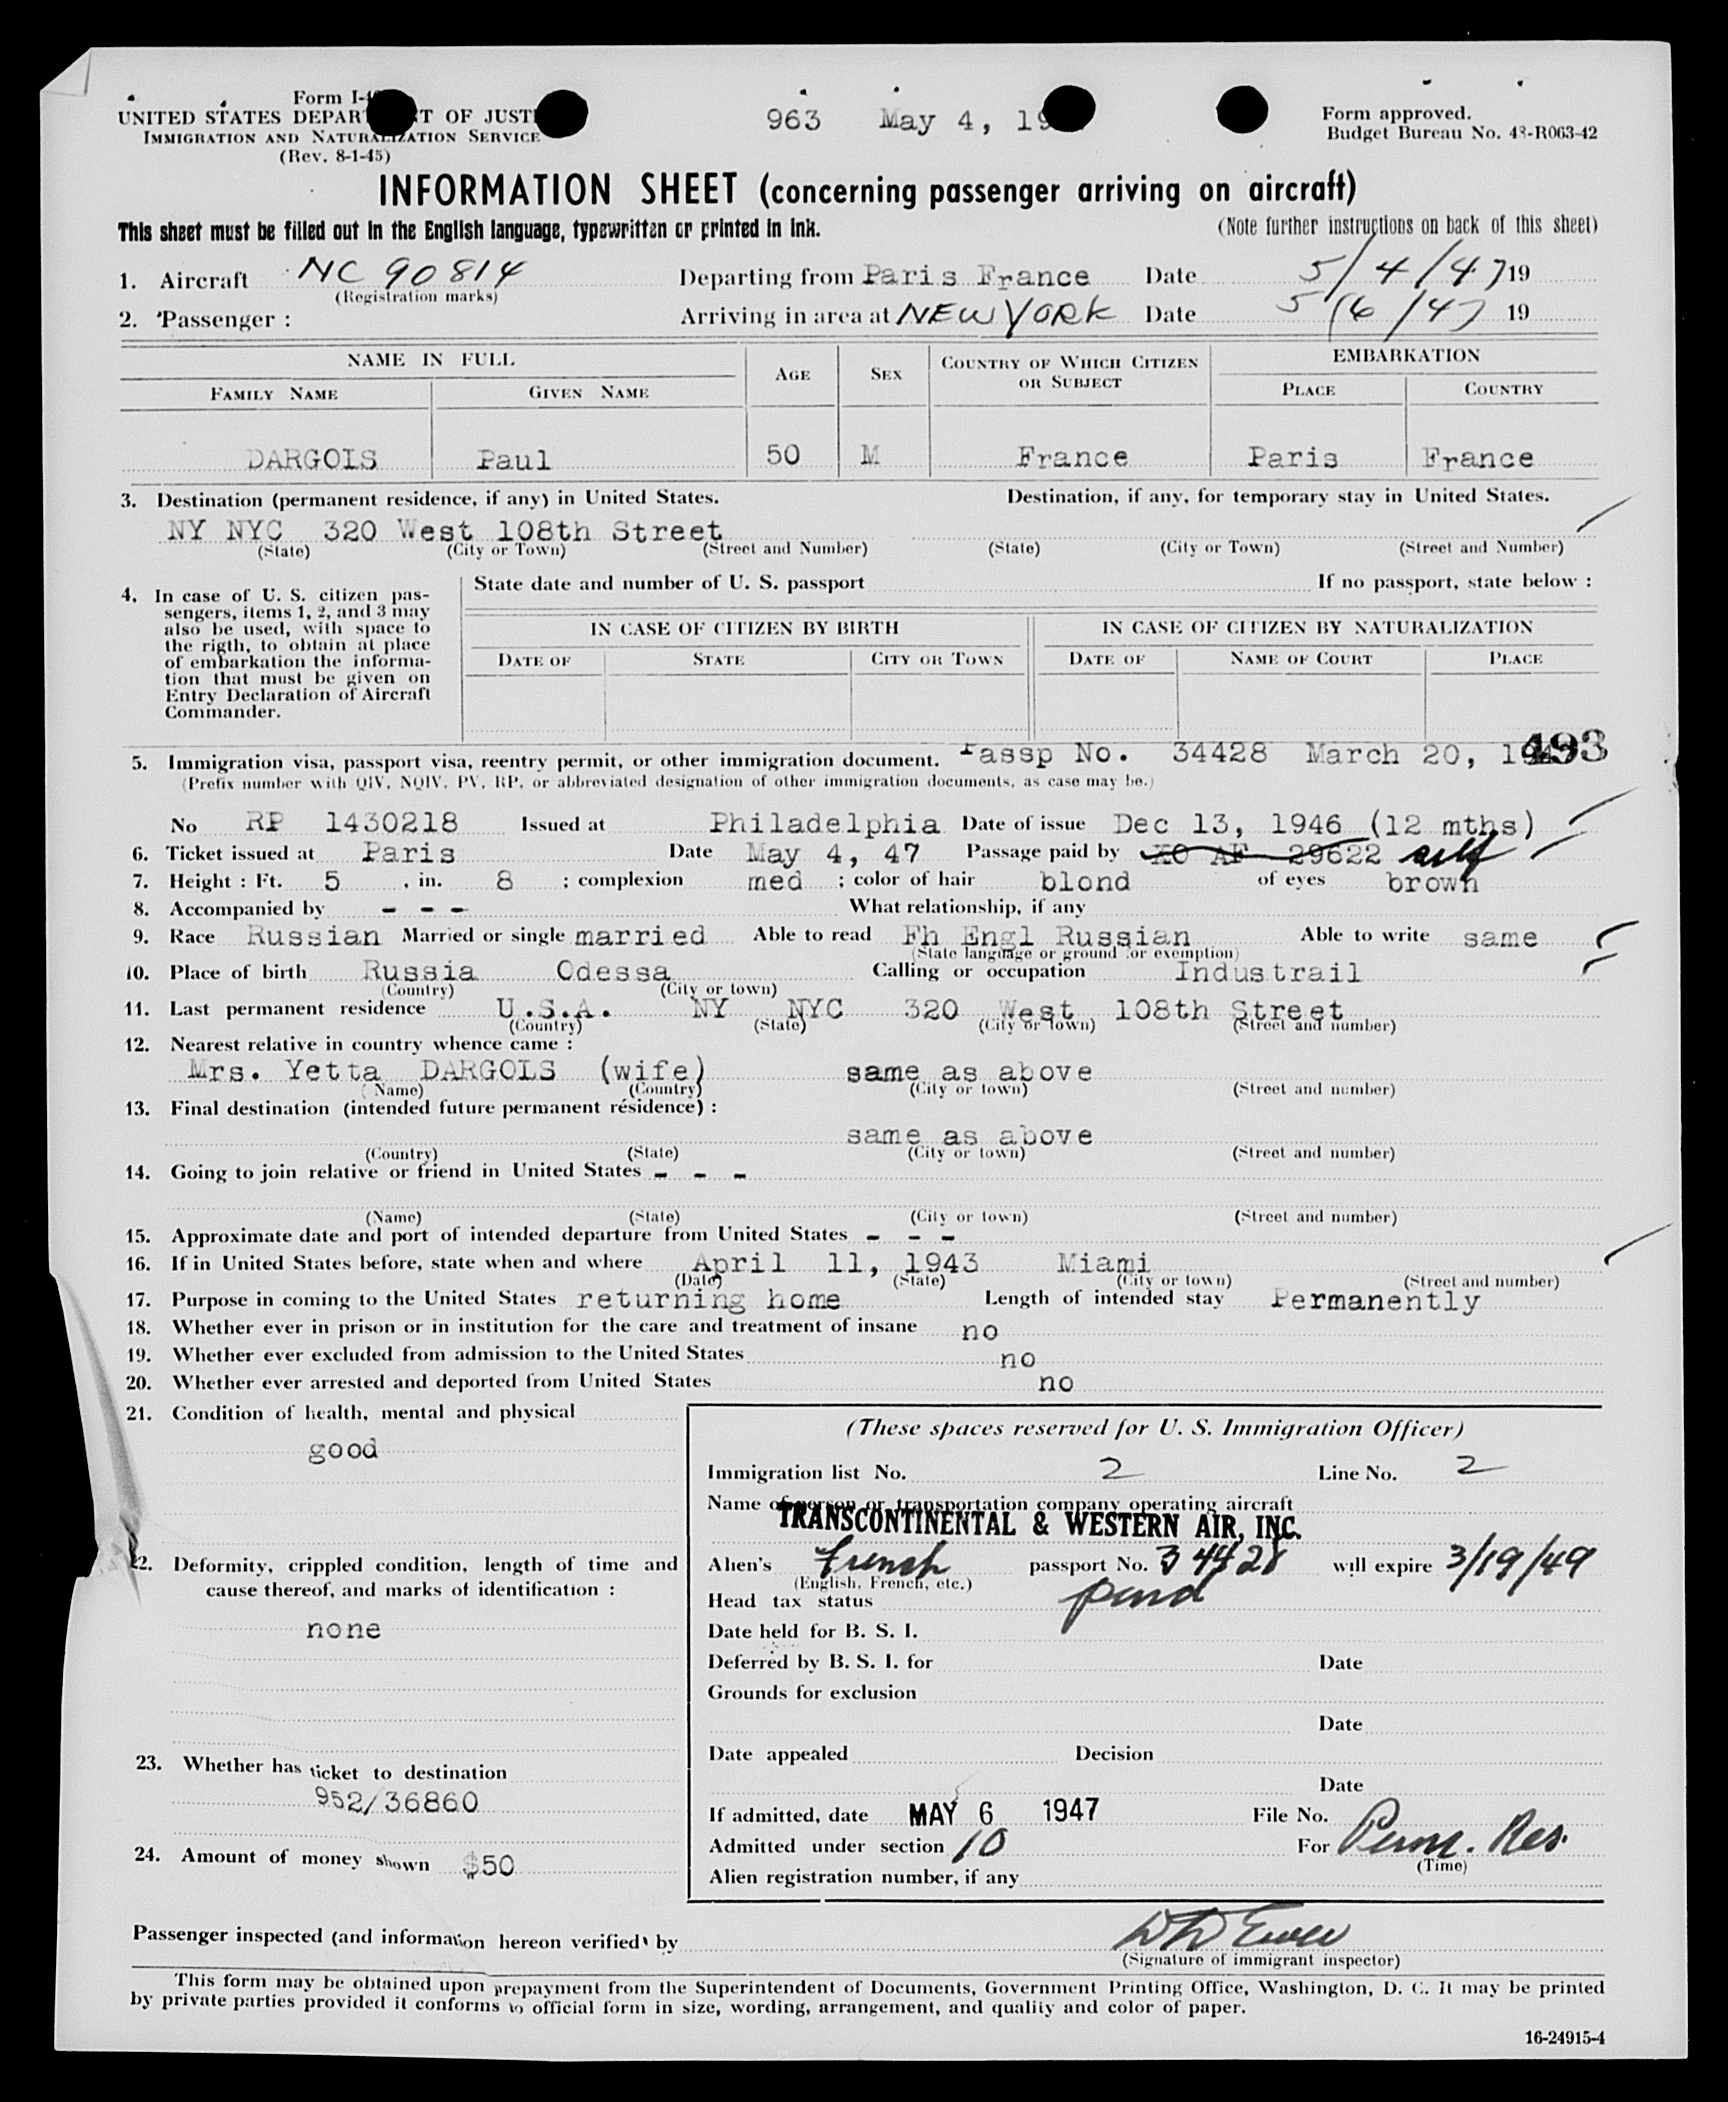 Form I-4
UNITED STATES DEPAR T OF JUST
IMMIGRATION AND NATURALIZATION SERVICE
(Rev. 8-1-45)
963 May 4, 19
Form approved.
Budget Bureau No. 43-R063-42
INFORMATION SHEET (concerning passenger arriving on aircraft)
This sheet must be filled out in the English language, typewritten or printed in ink.
(Note further instructions on back of this sheet)
1. Aircraft NC 90814 Departing from Paris France Date 5/4/47 19
(Registration marks)
2. Passenger : Arriving in area at NEW YORK Date 5/6/47 19
NAME IN FULL AGE SEX COUNTRY OF WHICH CITIZEN OR SUBJECT EMBARKATION
FAMILY NAME GIVEN NAME PLACE COUNTRY
DARGOIS Paul 50 M France Paris France
3. Destination (permanent residence, if any) in United States. Destination, if any, for temporary stay in United States.
NY NYC 320 West 108th Street
(State) (City or Town) (Street and Number) (State) (City or Town) (Street and Number)
4. In case of U. S. citizen pas-
sengers, items 1, 2, and 3 may
also be used, with space to
the rigth, to obtain at place
of embarkation the informa-
tion that must be given on
Entry Declaration of Aircraft
Commander.
State date and number of U. S. passport If no passport, state below :
IN CASE OF CITIZEN BY BIRTH IN CASE OF CITIZEN BY NATURALIZATION
DATE OF STATE CITY OR TOWN DATE OF NAME OF COURT PLACE
5. Immigration visa, passport visa, reentry permit, or other immigration document. Passp No. 34428 March 20, 19 493
(Prefix number with QIV, NQIV, PV, RP, or abbreviated designation of other immigration documents, as case may be.)
No RP 1430218 Issued at Philadelphia Date of issue Dec 13, 1946 (12 mths)
6. Ticket issued at Paris Date May 4, 47 Passage paid by XO AF 29622 self
7. Height : Ft. 5 , in. 8 ; complexion med ; color of hair blond of eyes brown
8. Accompanied by - - - What relationship, if any
9. Race Russian Married or single married Able to read Fh Engl Russian Able to write same
(State language or ground for exemption)
10. Place of birth Russia Odessa Calling or occupation Industrail
(Country) (City or town)
11. Last permanent residence U.S.A. NY NYC 320 West 108th Street
(Country) (State) (City or town) (Street and number)
12. Nearest relative in country whence came :
Mrs. Yetta DARGOIS (wife) same as above
(Name) (Country) (City or town) (Street and number)
13. Final destination (intended future permanent résidence) :
same as above
(Country) (State) (City or town) (Street and number)
14. Going to join relative or friend in United States - - -
(Name) (State) (City or town) (Street and number)
15. Approximate date and port of intended departure from United States - - -
16. If in United States before, state when and where April 11, 1943 Miami
(Date) (State) (City or town) (Street and number)
17. Purpose in coming to the United States returning home Length of intended stay Permanently
18. Whether ever in prison or in institution for the care and treatment of insane no
19. Whether ever excluded from admission to the United States no
20. Whether ever arrested and deported from United States no
21. Condition of health, mental and physical
good
22. Deformity, crippled condition, length of time and
cause thereof, and marks of identification :
none
23. Whether has ticket to destination
952/36860
24. Amount of money shown $50
(These spaces reserved for U. S. Immigration Officer)
Immigration list No. 2 Line No. 2
Name of person or transportation company operating aircraft
TRANSCONTINENTAL & WESTERN AIR, INC.
Alien's French passport No. 34428 will expire 3/19/49
(English, French, etc.)
Head tax status paid
Date held for B. S. I.
Deferred by B. S. I. for Date
Grounds for exclusion
Date
Date appealed Decision
Date
If admitted, date MAY 6 1947 File No.
Admitted under section 10 For Perm. Res.
(Time)
Alien registration number, if any
Passenger inspected (and information hereon verified) by
(Signature of immigrant inspector)
This form may be obtained upon prepayment from the Superintendent of Documents, Government Printing Office, Washington, D. C. It may be printed
by private parties provided it conforms to official form in size, wording, arrangement, and quality and color of paper.
16-24915-4